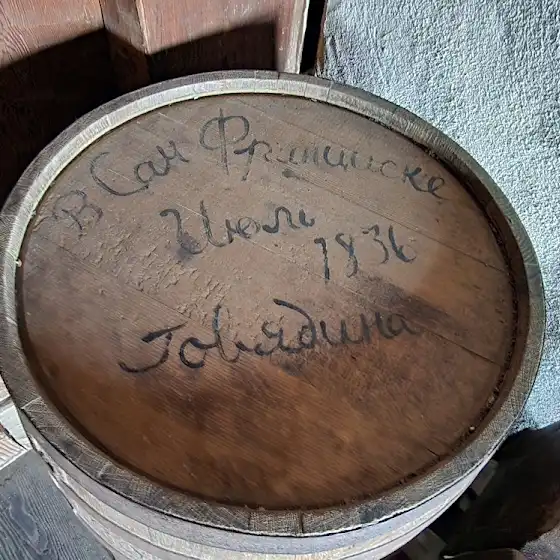 В Сан Францыске
Июль
1836
Говядина